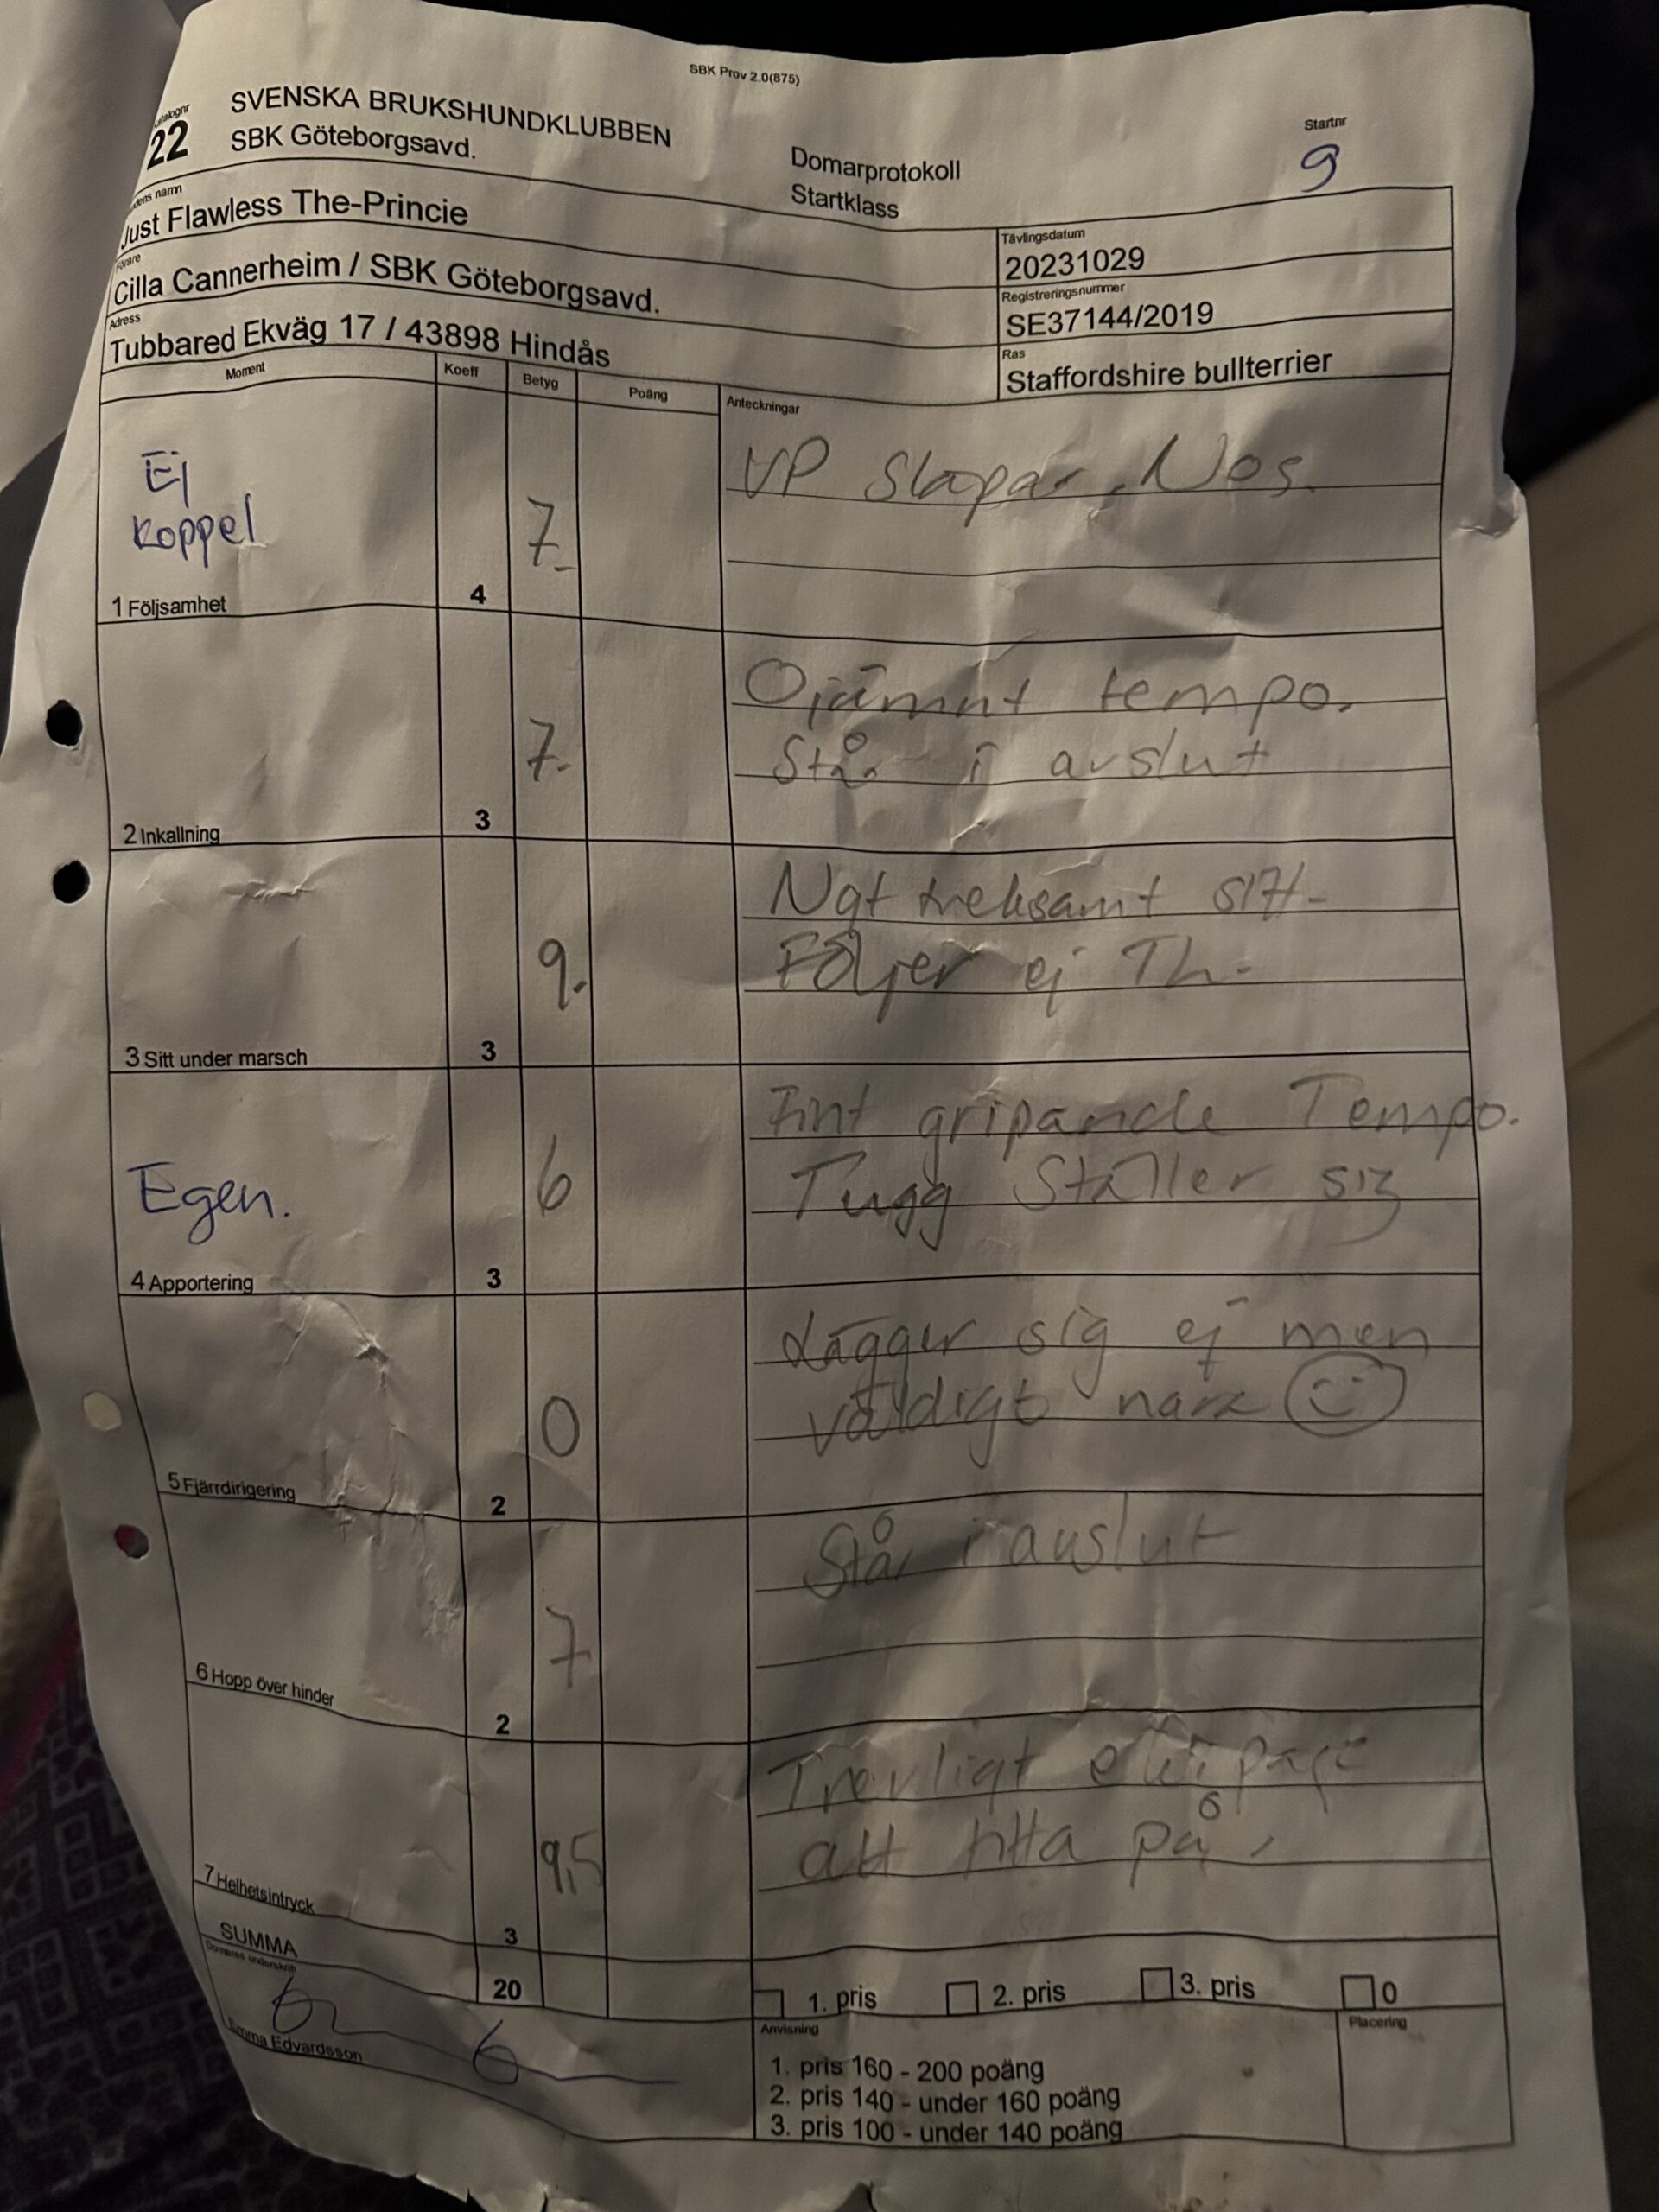 SBK Prov 2.0(875)
SVENSKA BRUKSHUNDKLUBBEN
22
SBK Göteborgsavd.
Domarprotokoll
Startklass
Startnr
9
Just Flawless The-Princie
Tävlingsdatum
20231029
Förare
Cilla Cannerheim / SBK Göteborgsavd.
Registreringsnummer
SE37144/2019
Adress
Tubbared Ekväg 17 / 43898 Hindås
Ras
Staffordshire bullterrier
Moment Koeff Betyg Poäng Anteckningar
Ej
koppel
7-
VP Släpar. Nos.
1 Följsamhet 4
7-
Ojämnt tempo.
Står i avslut
2 Inkallning 3
9.
Ngt treksamt sitt-
Följer ej Th-
3 Sitt under marsch 3
Egen.
6
Fint gripande Tempo.
Tugg Ställer sig
4 Apportering 3
0
Lägger sig ej men
väldigt nära
5 Fjärrdirigering 2
7
Står i avslut
6 Hopp över hinder 2
9,5
Trevligt ekipage
att titta på
7 Helhetsintryck 3
SUMMA 20
1. pris 2. pris 3. pris 0
Domares underskrift
Emma Edvardsson
Anvisning
1. pris 160 - 200 poäng
2. pris 140 - under 160 poäng
3. pris 100 - under 140 poäng
Placering